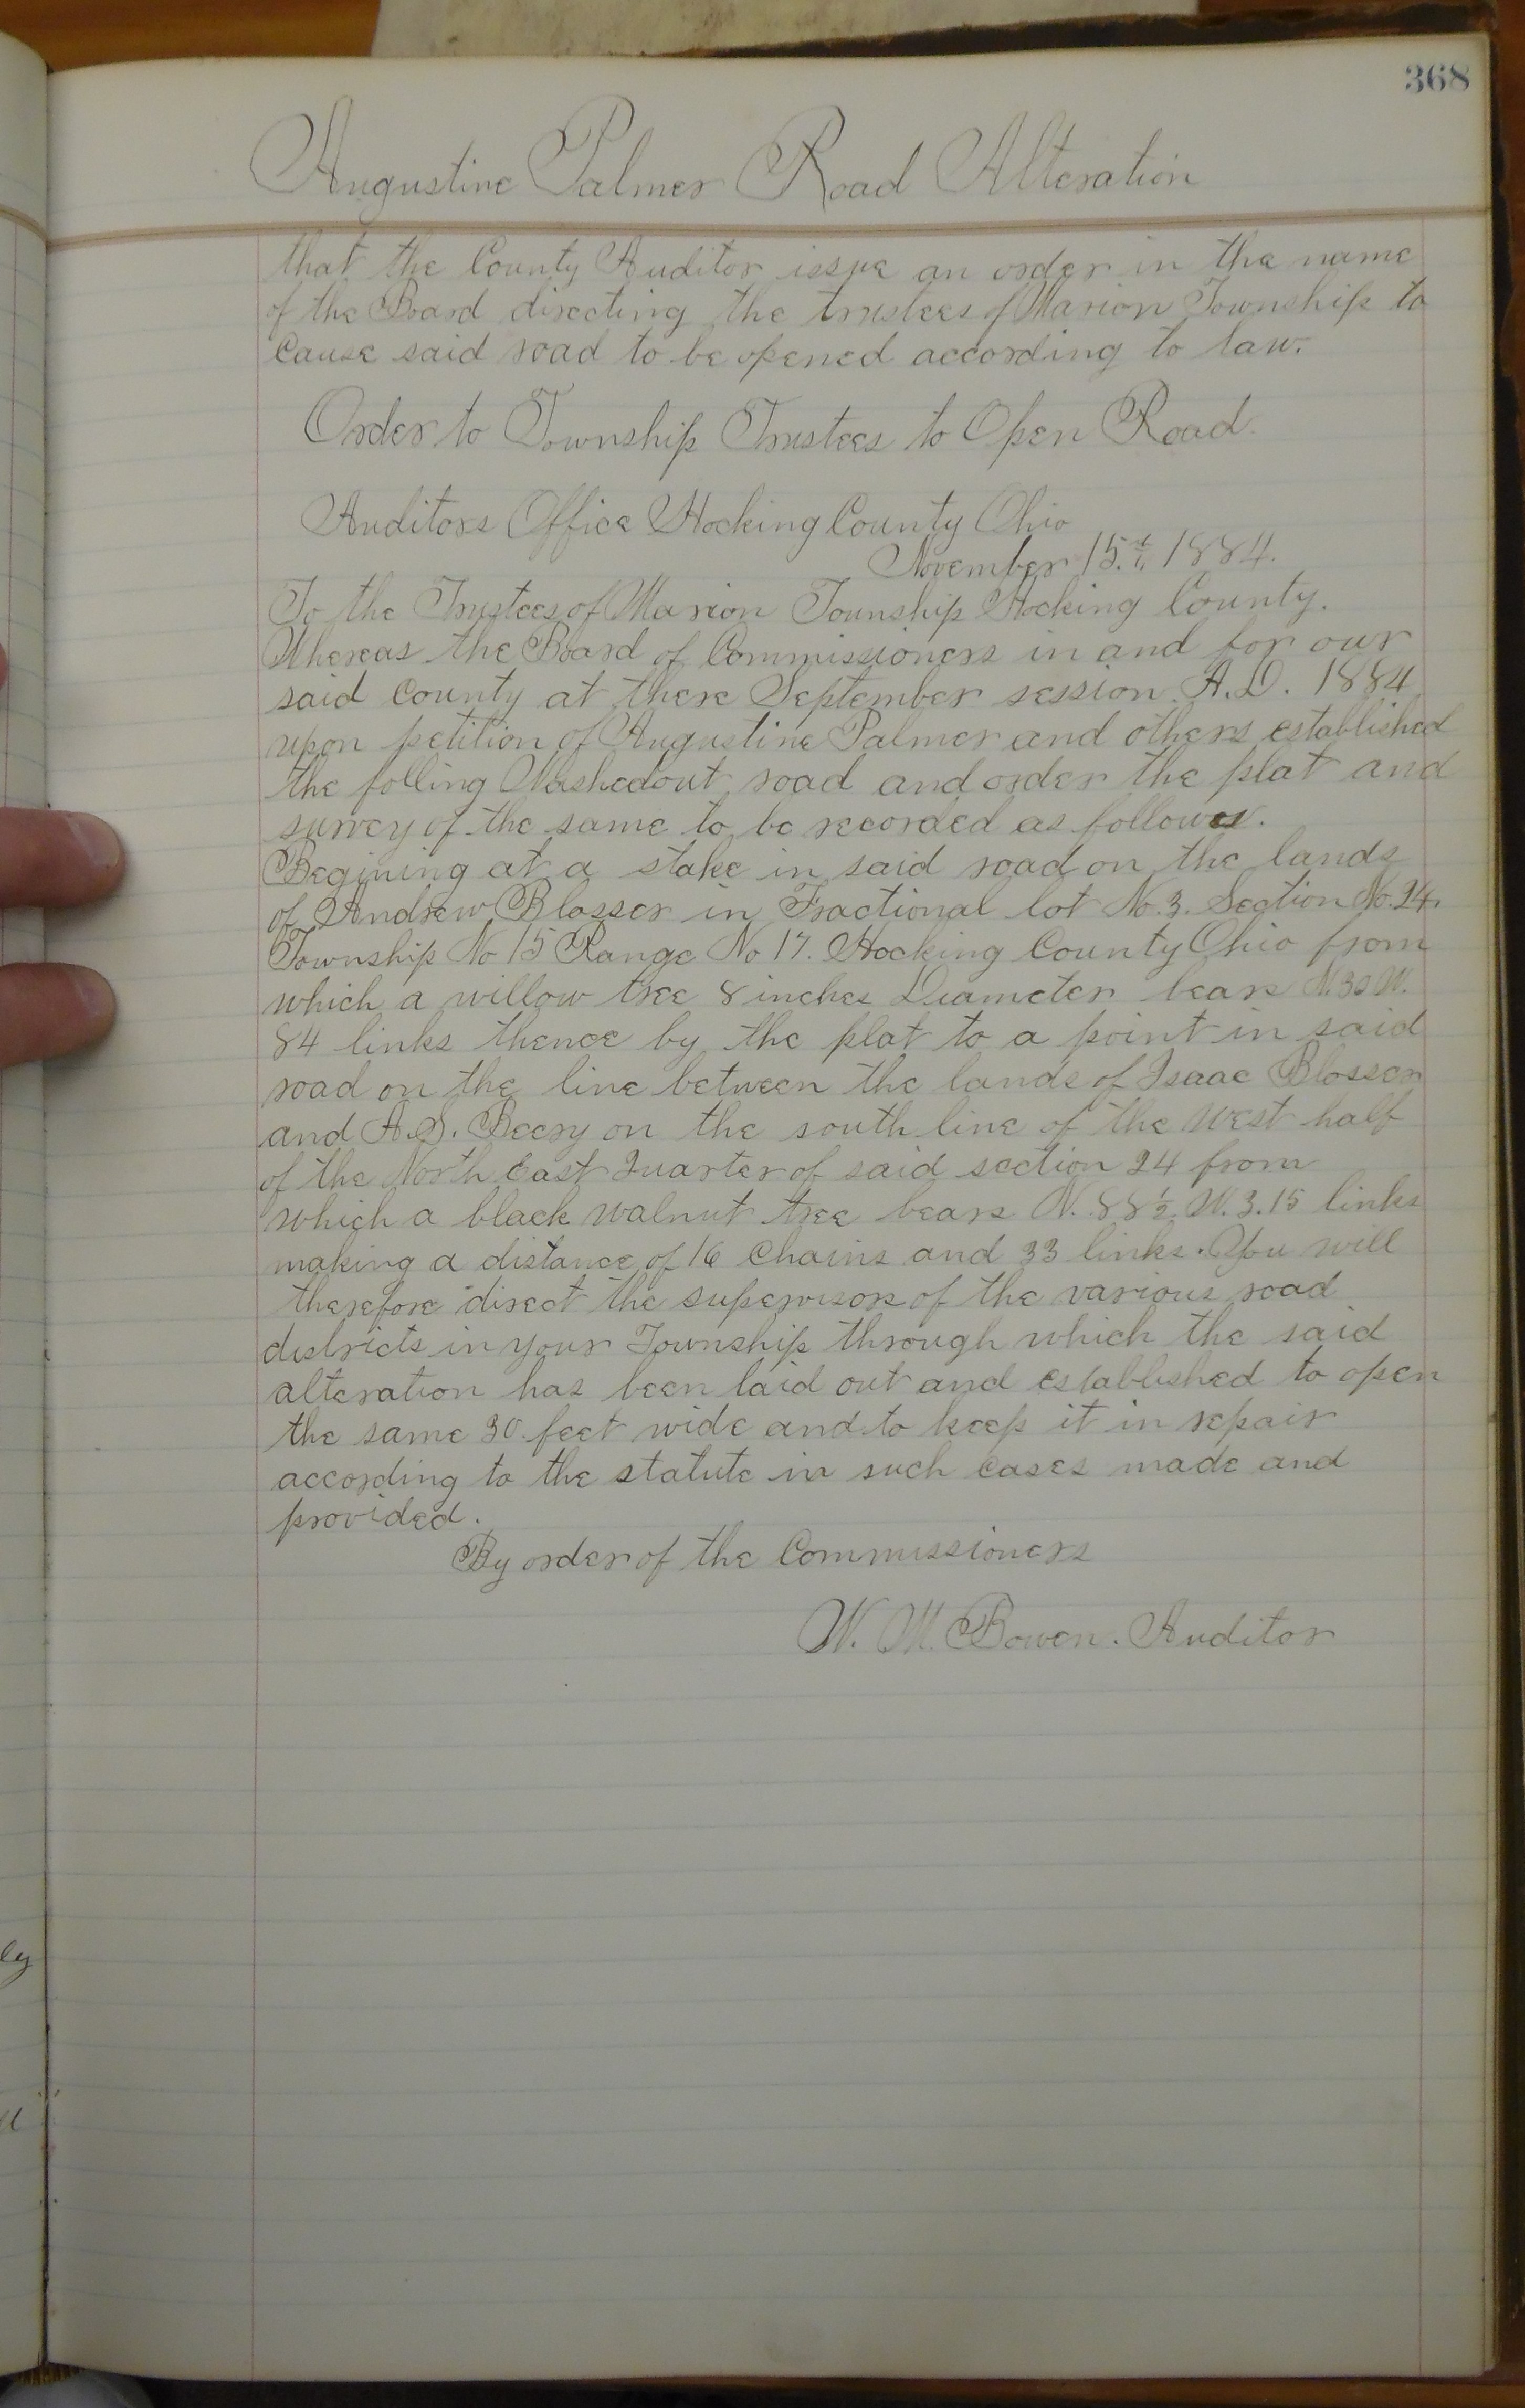 368
Augustine Palmer Road Alteration
that the County Auditor issue an order in the name
of the Board directing the trustees of Marion Township to
Cause said road to be opened according to law.
Order to Township Trustees to Open Road.
Auditors Office Hocking County Ohio
November 15.th 1884.
To the Trustees of Marion Township Hocking County.
Whereas the Board of Commissioners in and for our
said County at there September session A.D. 1884
upon petition of Augustine Palmer and others established
the folling Washedout road and order the plat and
survey of the same to be recorded as follows.
Begining at a stake in said road on the lands
of Andrew Blosser in Fractional lot No. 3. Section No. 24.
Township No 15 Range No 17. Hocking County Ohio from
which a willow tree 8 inches Diameter bears N. 30 W.
84 links thence by the plat to a point in said
road on the line between the lands of Isaac Blosser
and A.S. Beery on the south line of the west half
of the North East Quarter of said section 24 from
which a black walnut tree bears N. 88 1/2 W. 3.15 links
making a distance of 16 Chains and 33 links. You will
therefore direct the supervisors of the various road
districts in your Township through which the said
alteration has been laid out and established to open
the same 30 feet wide and to keep it in repair
according to the statute in such cases made and
provided.
By order of the Commissioners
W. M. Bowen. Auditor
ly